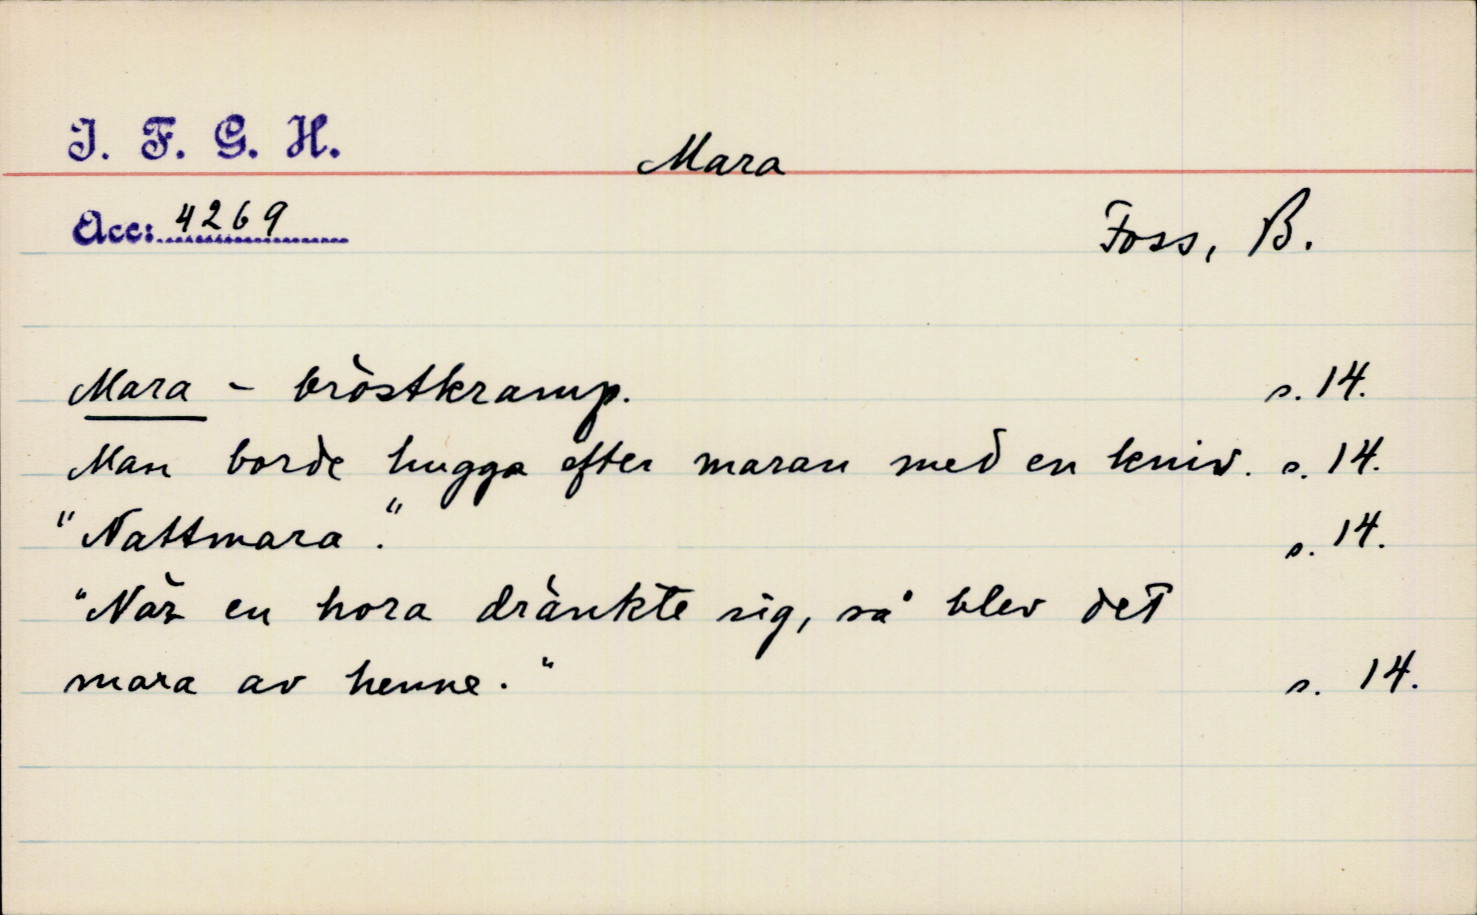 I. F. G. H.
Mara
Acc: 4269
Foss, B.
Mara - bröstkramp. s. 14.
Man borde hugga efter maran med en kniv. s. 14.
"Nattmara". s. 14.
"När en hora dränkte sig, så blev det
mara av henne." s. 14.